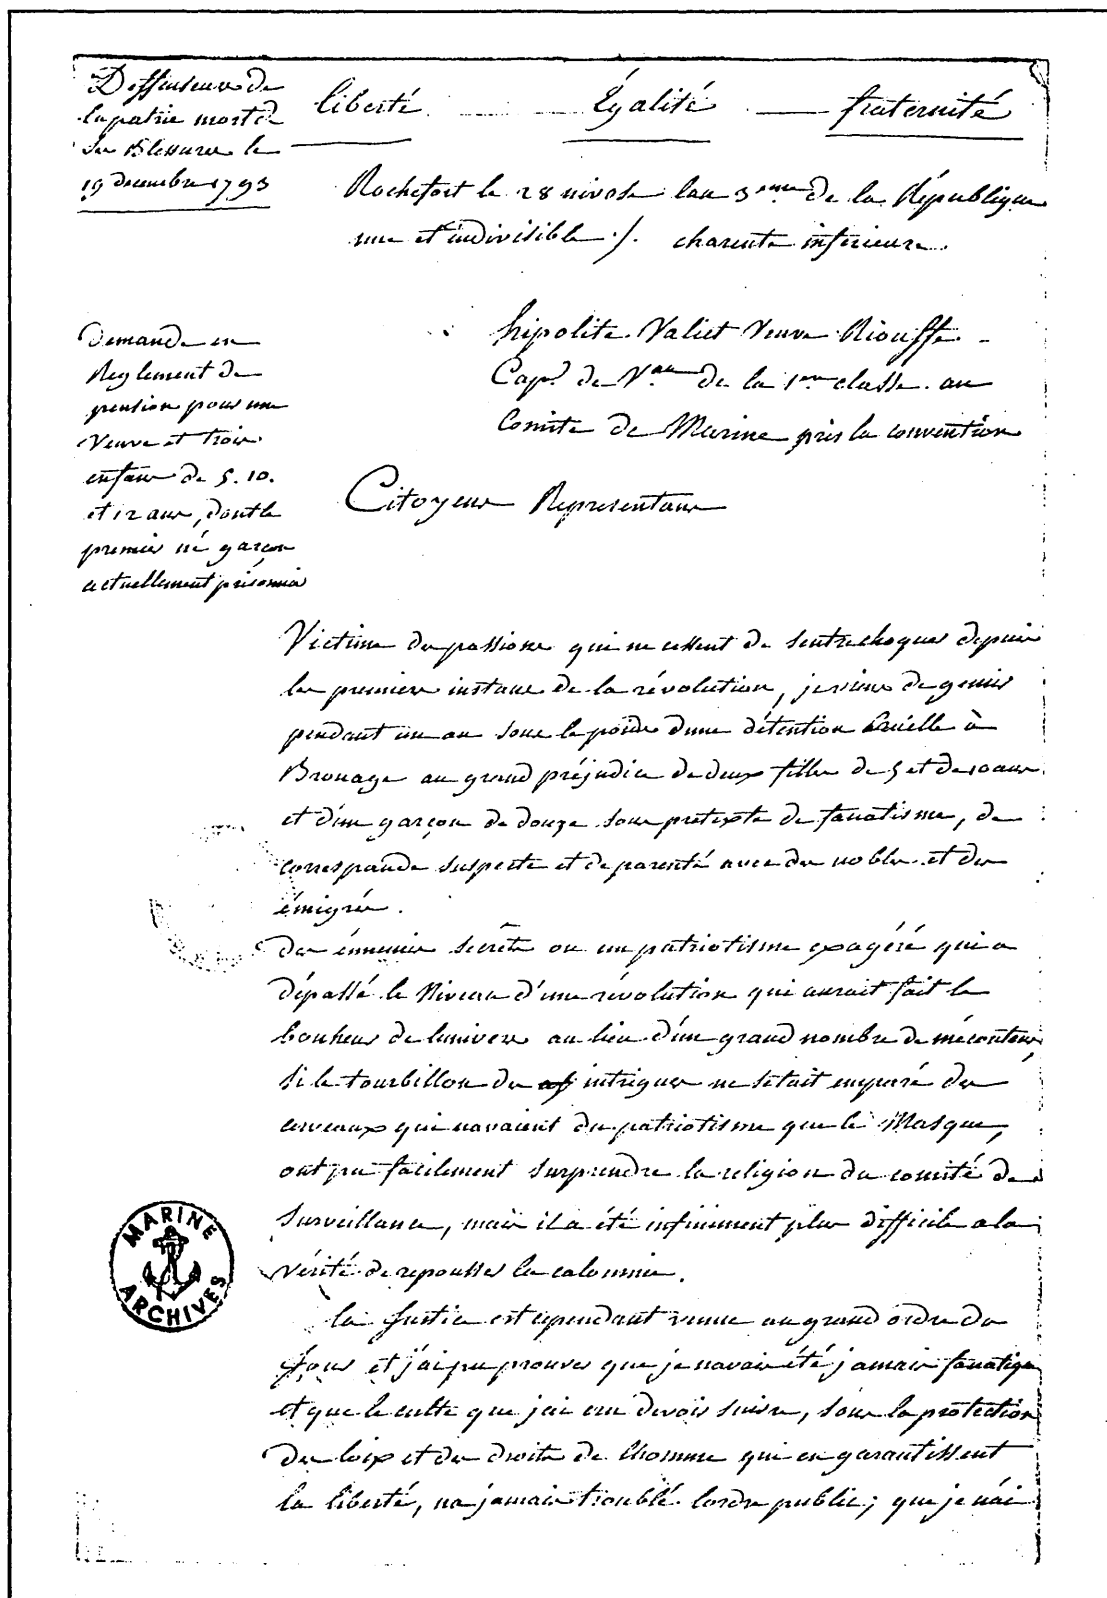 Deffenseur de
la patrie mort de
ses Blessures le
19 decembre 1793
liberté Égalité fraternité
Rochefort le 28 nivose lan 3eme de la République
une et indivisible ./. charente inférieure.
Demande en
Reglement de
pension pour une
Veuve et trois
enfans de 5. 10.
et 12 ans, dont le
premier né garçon
actuellement prisonnier
hipolite Valiet Veuve Riouffe
Cap.e de V.au de la 1ere classe. au
Comité de Marine près la convention
Citoyens Représentans
Victime des passions qui ne cessent de sentrechoquer depuis
les premiers instans de la révolution, je viens de gemir
pendant un an sous le poids dune détention cruelle à
Brouage au grand préjudice de deux filles de 5 et de 10 ans
et d'un garçon de douze sous pretexte de fanatisme, de
correspande suspecte et de parenté avec des nobles et des
émigrés.
des énnemis secrets ou un patriotisme exagéré qui a
dépassé le Niveau d'une révolution qui aurait fait le
bonheur de lunivers au lieu d'un grand nombre de mécontens,
si le tourbillon des intrigues ne setait emparé des
cerveaux qui navaient du patriotisme que le Masque,
ont pu facilement surprendre la religion du comité de
Surveillance, mais il a été infiniment plus difficile a la
vérité de repousser la calomnie.
la Justice est cependant venue au grand ordre du
Jour et j'ai pu prouver que je navais été jamais fanatique
et que le culte que jai cru devoir suivre, sous la protection
des loix et des droits de lhomme qui en garantissent
la liberté, na jamais troublé lordre public; que je nai
MARINE
ARCHIVES